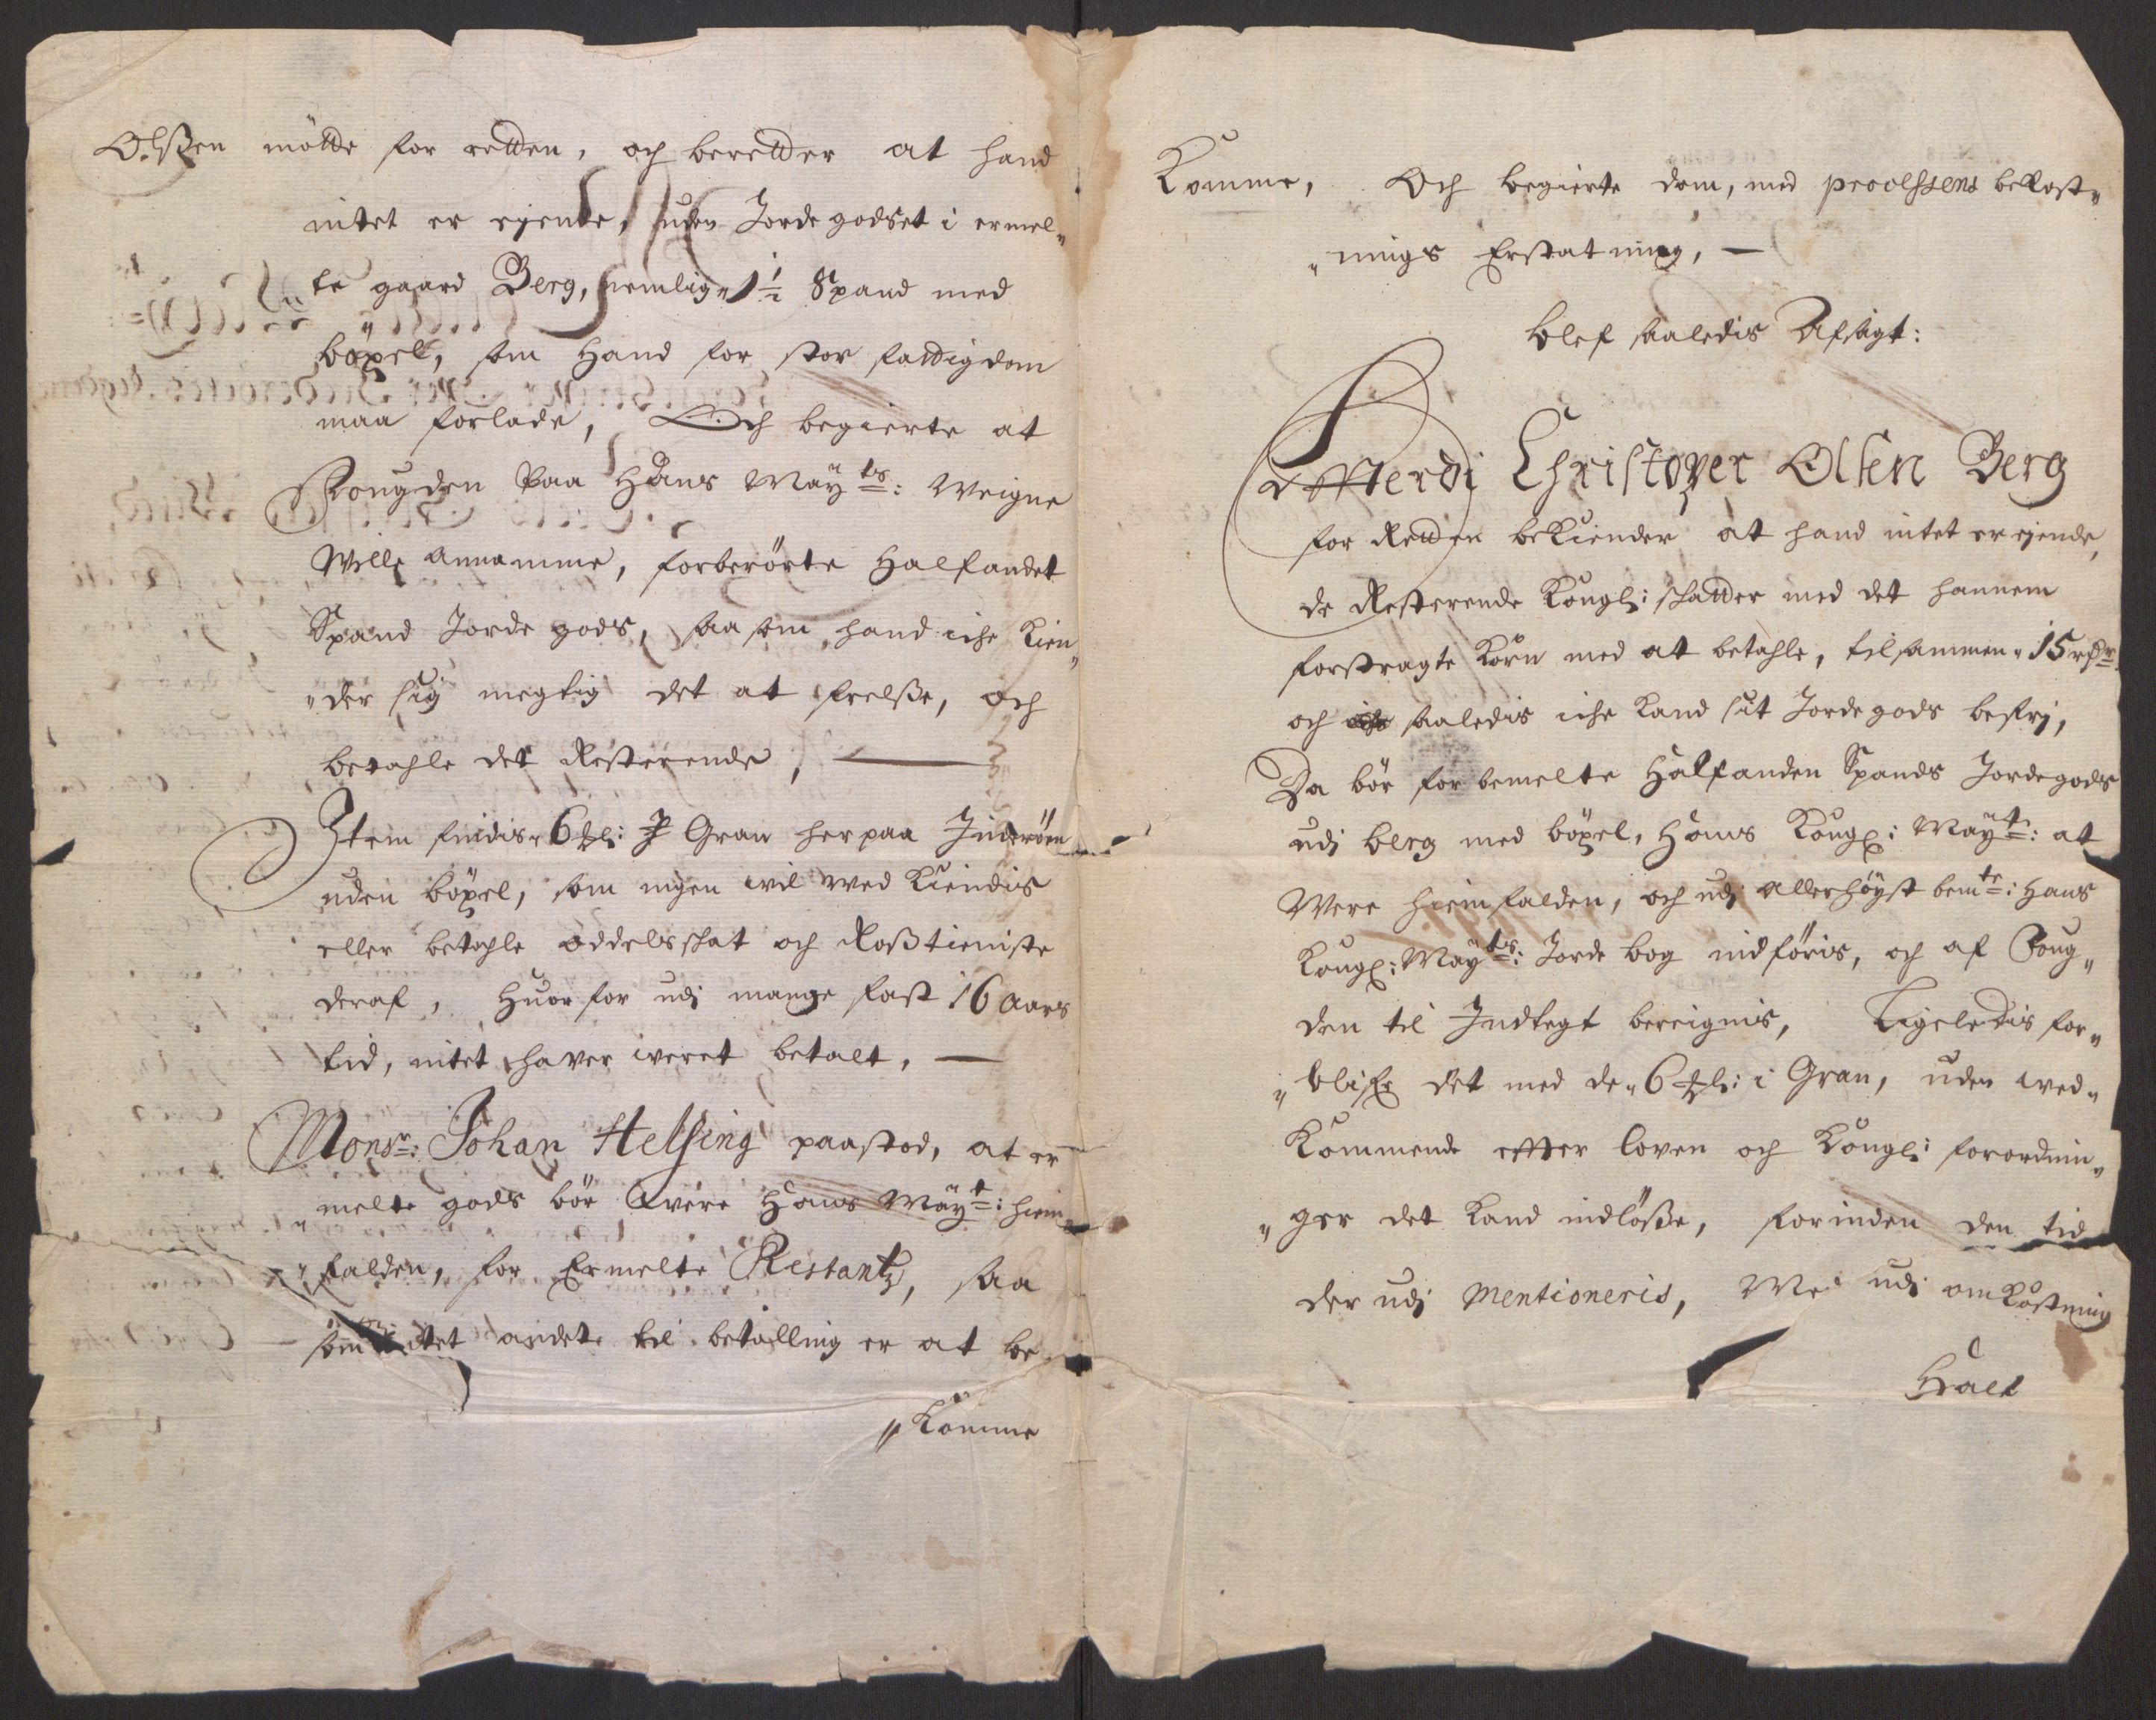 Olsßen mötte for retten, och beretter at hand
intet er eyende, uden Jorde godset i ermel„
te gaard Berg, nemlig„ 1½ Spand med
böxel, som Hand for stor fattigdom
maa forlade, Och begierte at
Fougden Paa Hans Maÿts: Weigne
Wille annamme, forberörte Halfandet
Spand Jorde gods, saasom hand iche kien„
„der sig megtig det at frelsße, och
betahle det Resterende, —
Item findis„ 6 : J Gran her paa Inderöen
uden böxel, som ingen vil ved kiendis
eller betahle oddelsschat och Rosßtieniste
deraf, Huor for udj mange fast 16 Aars
tid, intet haver weret betalt, —
Monsr: Johan Helsing paastod, at er
„melte gods bör were Hans Maÿt: hiem„
„falden, for Ermelte Restantz, saa
som intet andet til betalling er at be„
„komme
Komme, Och begierte dom, med processens bekost„
„nings Erstatning, —
blef saaledis Afsagt:
Effterdi Christoper Olsen Berg
for Retten bekiender at hand intet er eyende,
de Resterende Kongl: schatter med det hannem
forstragte Korn med at betahle, tilsammen„ 15 rdr
och saaledis iche kand sit Jordegods befrj,
Da bör for bemelte Halfanden Spands Jordegods
udj Berg med böxel, Hans Kongl: Maÿt: at
Were hiemfalden, och udj allerhöyst bemte: Hans
Kongl: Maÿts: Jorde bog indföris, och af Foug„
den til Indtegt bereignis, Ligeledis for„
„blifr det med de„ 6 : i Gran, uden wed„
Kommende effter loven och Kongl: forordnin„
„ger det kand indlösße, forinden den tid
der udj Mentioneris, Me udj omkostning
Hualt